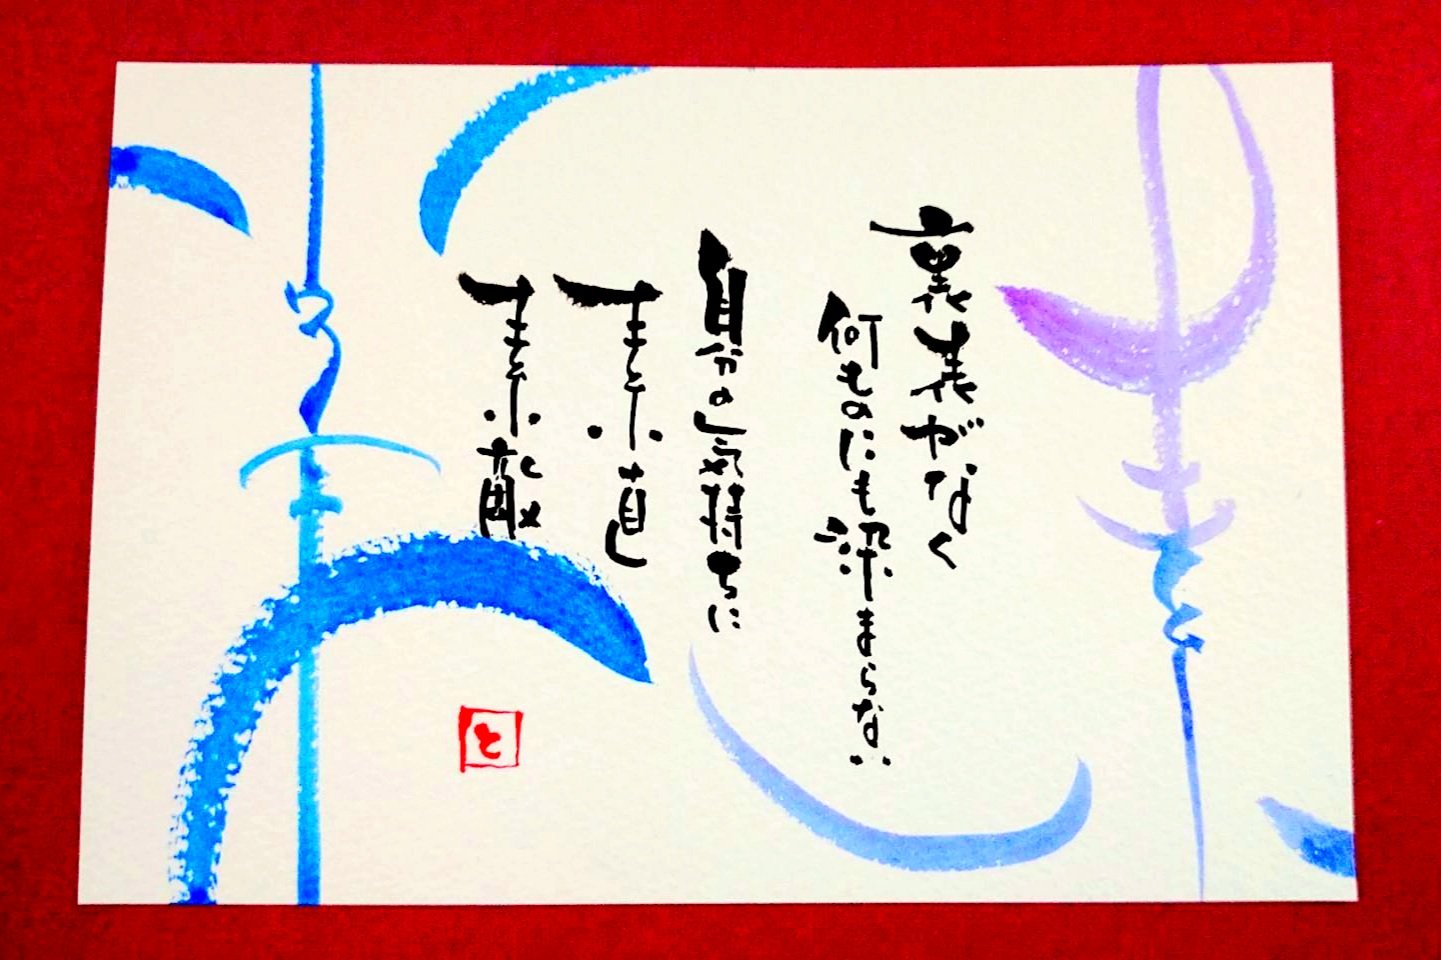 裏表がなく
何ものにも染まらない
自分の気持ちに
素直
素敵
と